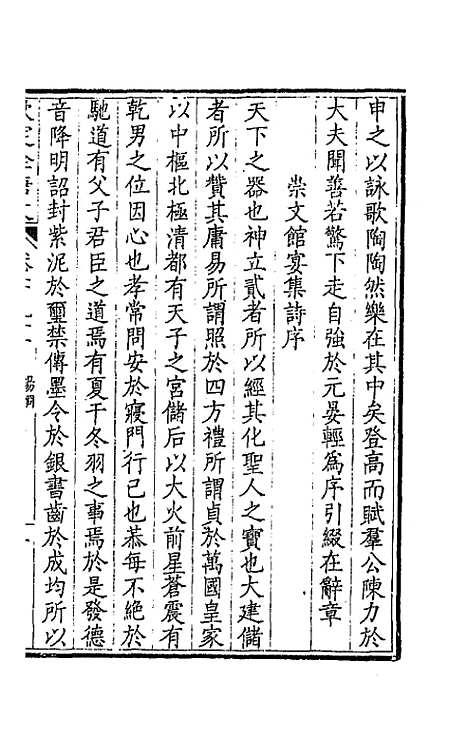 申之以詠歌陶陶然樂在其中矣登高而賦羣公陳力於
大夫聞善若驚下走自強於元晏輕為序引綴在辭章
崇文館宴集詩序
天下之器也神立貳者所以經其化聖人之寶也大建儲
者所以贊其庸易所謂照於四方禮所謂貞於萬國皇家
以中樞北極清都有天子之宮儲后以大火前星蒼震有
乾男之位因心也孝常問安於寢門行已也恭每不絶於
馳道有父子君臣之道焉有夏干冬羽之事焉於是發德
音降明詔封紫泥於璽禁傳墨令於銀書齒於成均所以